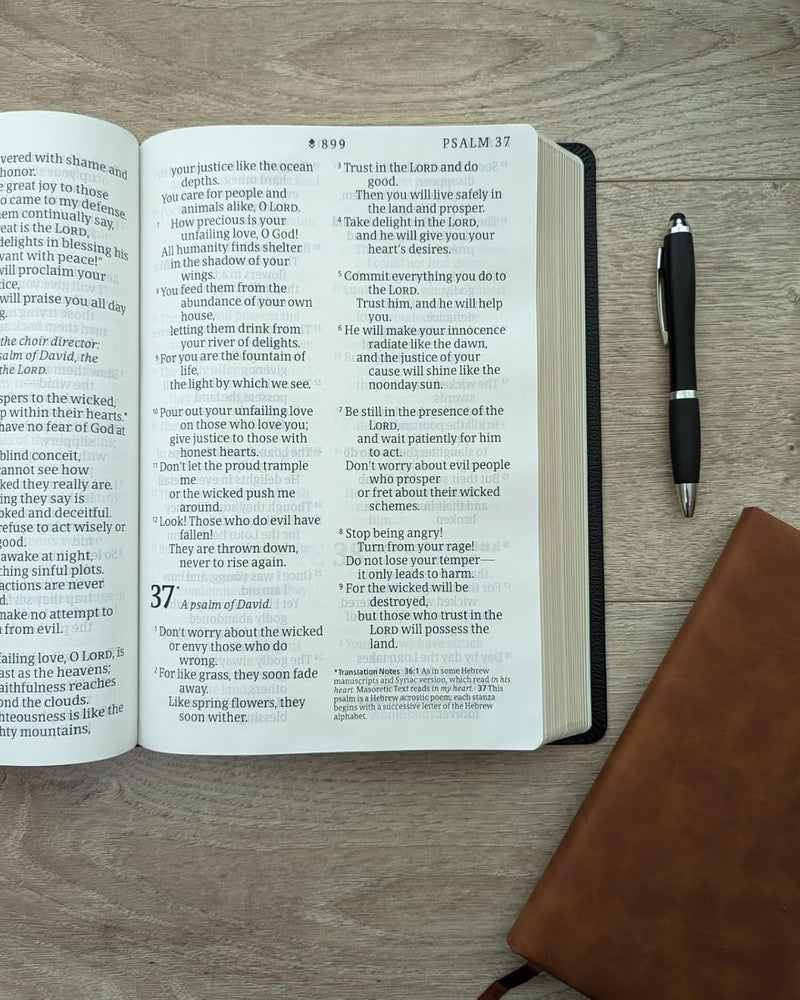 vered with shame and
honor.
e great joy to those
o came to my defense.
em continually say,
eat is the LORD,
delights in blessing his
vant with peace!"
will proclaim your
tice,
will praise you all day
g.
the choir director:
salm of David, the
the LORD.
spers to the wicked,
p within their hearts.*
have no fear of God at
blind conceit,
cannot see how
ked they really are.
ing they say is
oked and deceitful.
refuse to act wisely or
good.
awake at night,
ching sinful plots.
actions are never
d.
make no attempt to
from evil.
failing love, O LORD, is
ast as the heavens;
aithfulness reaches
ond the clouds.
ghteousness is like the
hty mountains,
899
PSALM 37
your justice like the ocean
depths.
You care for people and
animals alike, O LORD.
7 How precious is your
unfailing love, O God!
All humanity finds shelter
in the shadow of your
wings.
8 You feed them from the
abundance of your own
house,
letting them drink from
your river of delights.
9 For you are the fountain of
life,
the light by which we see.
10 Pour out your unfailing love
on those who love you;
give justice to those with
honest hearts.
11 Don't let the proud trample
me
or the wicked push me
around.
12 Look! Those who do evil have
fallen!
They are thrown down,
never to rise again.
37*
A psalm of David.
1 Don't worry about the wicked
or envy those who do
wrong.
2 For like grass, they soon fade
away.
Like spring flowers, they
soon wither.
3 Trust in the LORD and do
good.
Then you will live safely in
the land and prosper.
4 Take delight in the LORD,
and he will give you your
heart's desires.
5 Commit everything you do to
the LORD.
Trust him, and he will help
you.
6 He will make your innocence
radiate like the dawn,
and the justice of your
cause will shine like the
noonday sun.
7 Be still in the presence of the
LORD,
and wait patiently for him
to act.
Don't worry about evil people
who prosper
or fret about their wicked
schemes.
8 Stop being angry!
Turn from your rage!
Do not lose your temper—
it only leads to harm.
9 For the wicked will be
destroyed,
but those who trust in the
LORD will possess the
land.
*Translation Notes 36:1 As in some Hebrew
manuscripts and Syriac version, which read in his
heart. Masoretic Text reads in my heart. 37 This
psalm is a Hebrew acrostic poem; each stanza
begins with a successive letter of the Hebrew
alphabet.